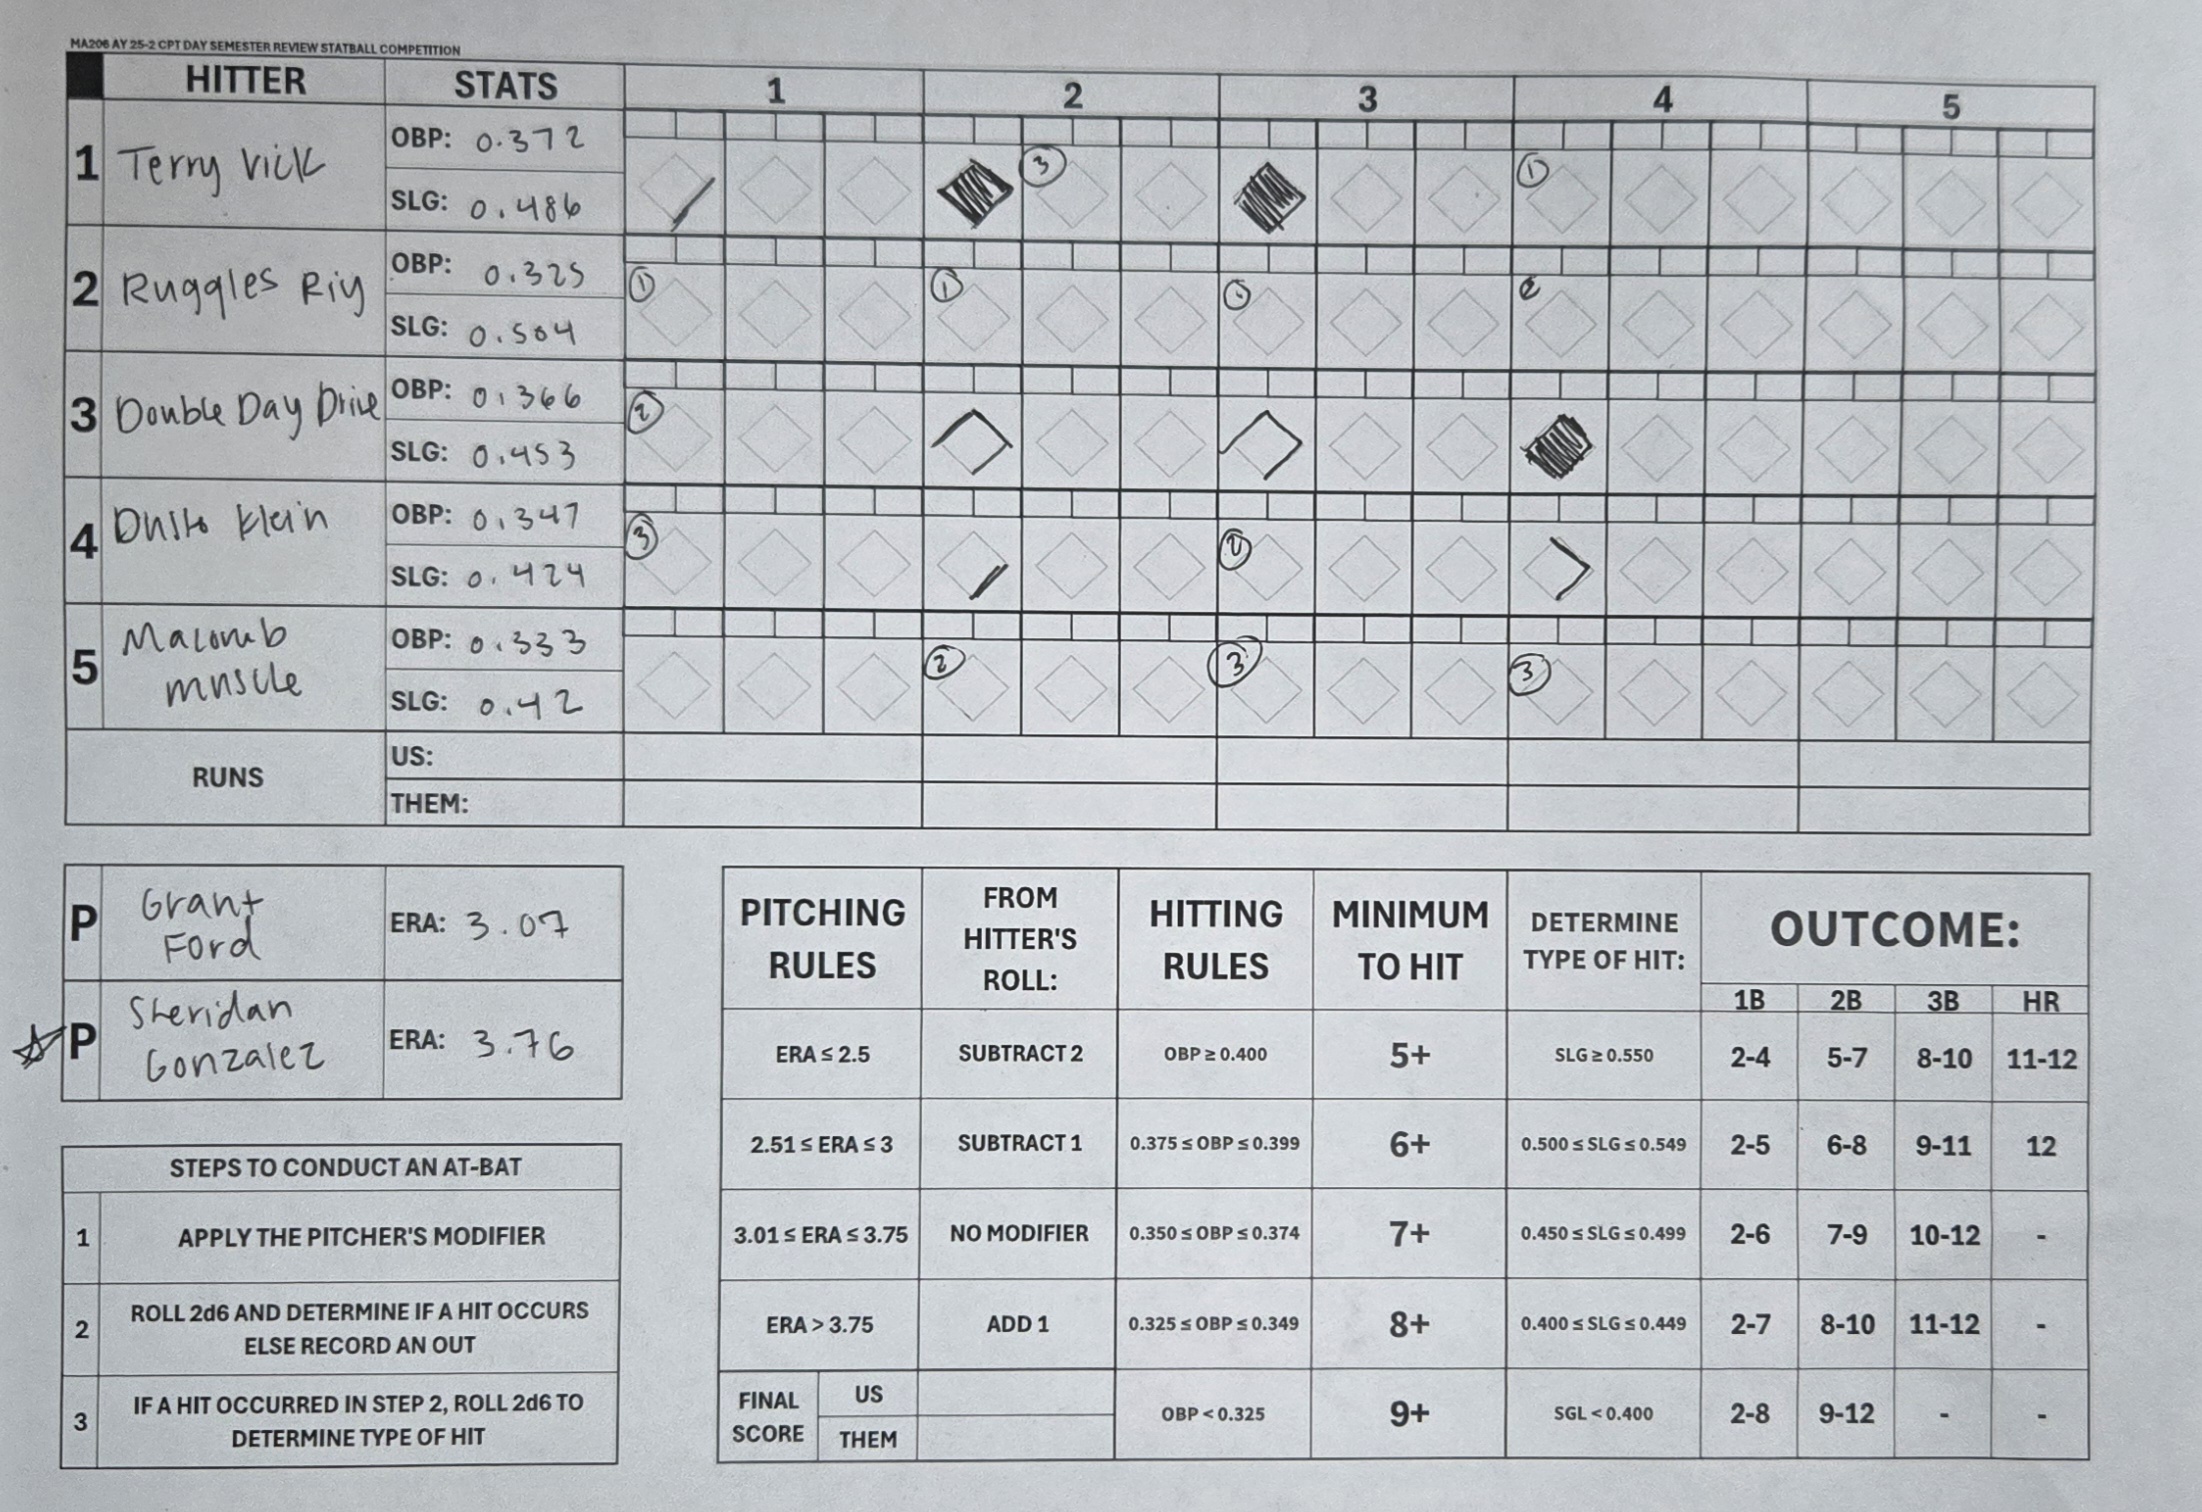 MA206 AY 25-2 CPT DAY SEMESTER REVIEW STATBALL COMPETITION
HITTER STATS 1 2 3 4 5
1 Terry Vick OBP: 0.372
SLG: 0.486
3
1
2 Ruggles Riy OBP: 0.325
SLG: 0.504
1 1 1 2
3 Double Day Drive OBP: 0.366
SLG: 0.453
2
4 Klein OBP: 0.347
SLG: 0.424
3 2
5 Macomb
muscle
OBP: 0.333
SLG: 0.42
2 3 3
RUNS US:
THEM:
P Grant
Ford
ERA: 3.07
P Sheridan
Gonzalez
ERA: 3.76
STEPS TO CONDUCT AN AT-BAT
1 APPLY THE PITCHER'S MODIFIER
2 ROLL 2d6 AND DETERMINE IF A HIT OCCURS
ELSE RECORD AN OUT
3 IF A HIT OCCURRED IN STEP 2, ROLL 2d6 TO
DETERMINE TYPE OF HIT
PITCHING
RULES
FROM
HITTER'S
ROLL:
HITTING
RULES
MINIMUM
TO HIT
DETERMINE
TYPE OF HIT:
OUTCOME:
1B 2B 3B HR
ERA ≤ 2.5 SUBTRACT 2 OBP ≥ 0.400 5+ SLG ≥ 0.550 2-4 5-7 8-10 11-12
2.51 ≤ ERA ≤ 3 SUBTRACT 1 0.375 ≤ OBP ≤ 0.399 6+ 0.500 ≤ SLG ≤ 0.549 2-5 6-8 9-11 12
3.01 ≤ ERA ≤ 3.75 NO MODIFIER 0.350 ≤ OBP ≤ 0.374 7+ 0.450 ≤ SLG ≤ 0.499 2-6 7-9 10-12 -
ERA > 3.75 ADD 1 0.325 ≤ OBP ≤ 0.349 8+ 0.400 ≤ SLG ≤ 0.449 2-7 8-10 11-12 -
FINAL
SCORE
US
THEM
OBP < 0.325 9+ SGL < 0.400 2-8 9-12 - -